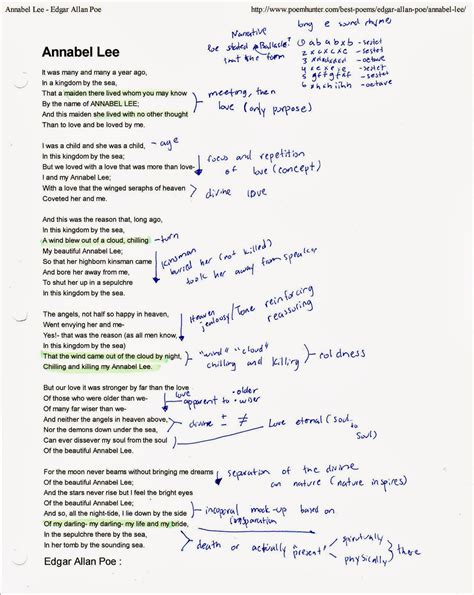 Annabel Lee - Edgar Allan Poe
http://www.poemhunter.com/best-poems/edgar-allan-poe/annabel-lee/
Narrative
long e sound rhyme
Poe stated Ballade
isn't the form
① a b a b x b - sestet
2 x c x c x c - sestet
octave
sestet
octave
Annabel Lee
It was many and many a year ago,
In a kingdom by the sea,
That a maiden there lived whom you may know
By the name of ANNABEL LEE;
And this maiden she lived with no other thought
Than to love and be loved by me.
meeting, then
love (only purpose)
I was a child and she was a child,
- age
In this kingdom by the sea;
But we loved with a love that was more than love-
I and my Annabel Lee;
With a love that the winged seraphs of heaven
Coveted her and me.
focus and repetition
of love (concept)
divine love
And this was the reason that, long ago,
In this kingdom by the sea,
A wind blew out of a cloud, chilling
- turn
My beautiful Annabel Lee;
So that her highborn kinsman came
And bore her away from me,
To shut her up in a sepulchre
In this kingdom by the sea.
Kinsman
buried her (not killed)
took her away from speaker
The angels, not half so happy in heaven,
Went envying her and me-
Yes!- that was the reason (as all men know,
In this kingdom by the sea)
That the wind came out of the cloud by night,
Chilling and killing my Annabel Lee.
Heaven
jealousy/Tone reinforcing
reassuring
"wind" "cloud"
chilling and killing
coldness
But our love it was stronger by far than the love
Of those who were older than we-
Of many far wiser than we-
And neither the angels in heaven above,
Nor the demons down under the sea,
Can ever dissever my soul from the soul
Of the beautiful Annabel Lee.
love
apparent to
• older
• wiser
divine ± ≠
Love eternal (soul
to
soul)
For the moon never beams without bringing me dreams
Of the beautiful Annabel Lee;
And the stars never rise but I feel the bright eyes
Of the beautiful Annabel Lee;
And so, all the night-tide, I lie down by the side
Of my darling- my darling- my life and my bride,
In the sepulchre there by the sea,
In her tomb by the sounding sea.
separation of the divine
nature (nature inspires)
mock-up based on
death or actually "present"
spiritually
physically
there
Edgar Allan Poe :